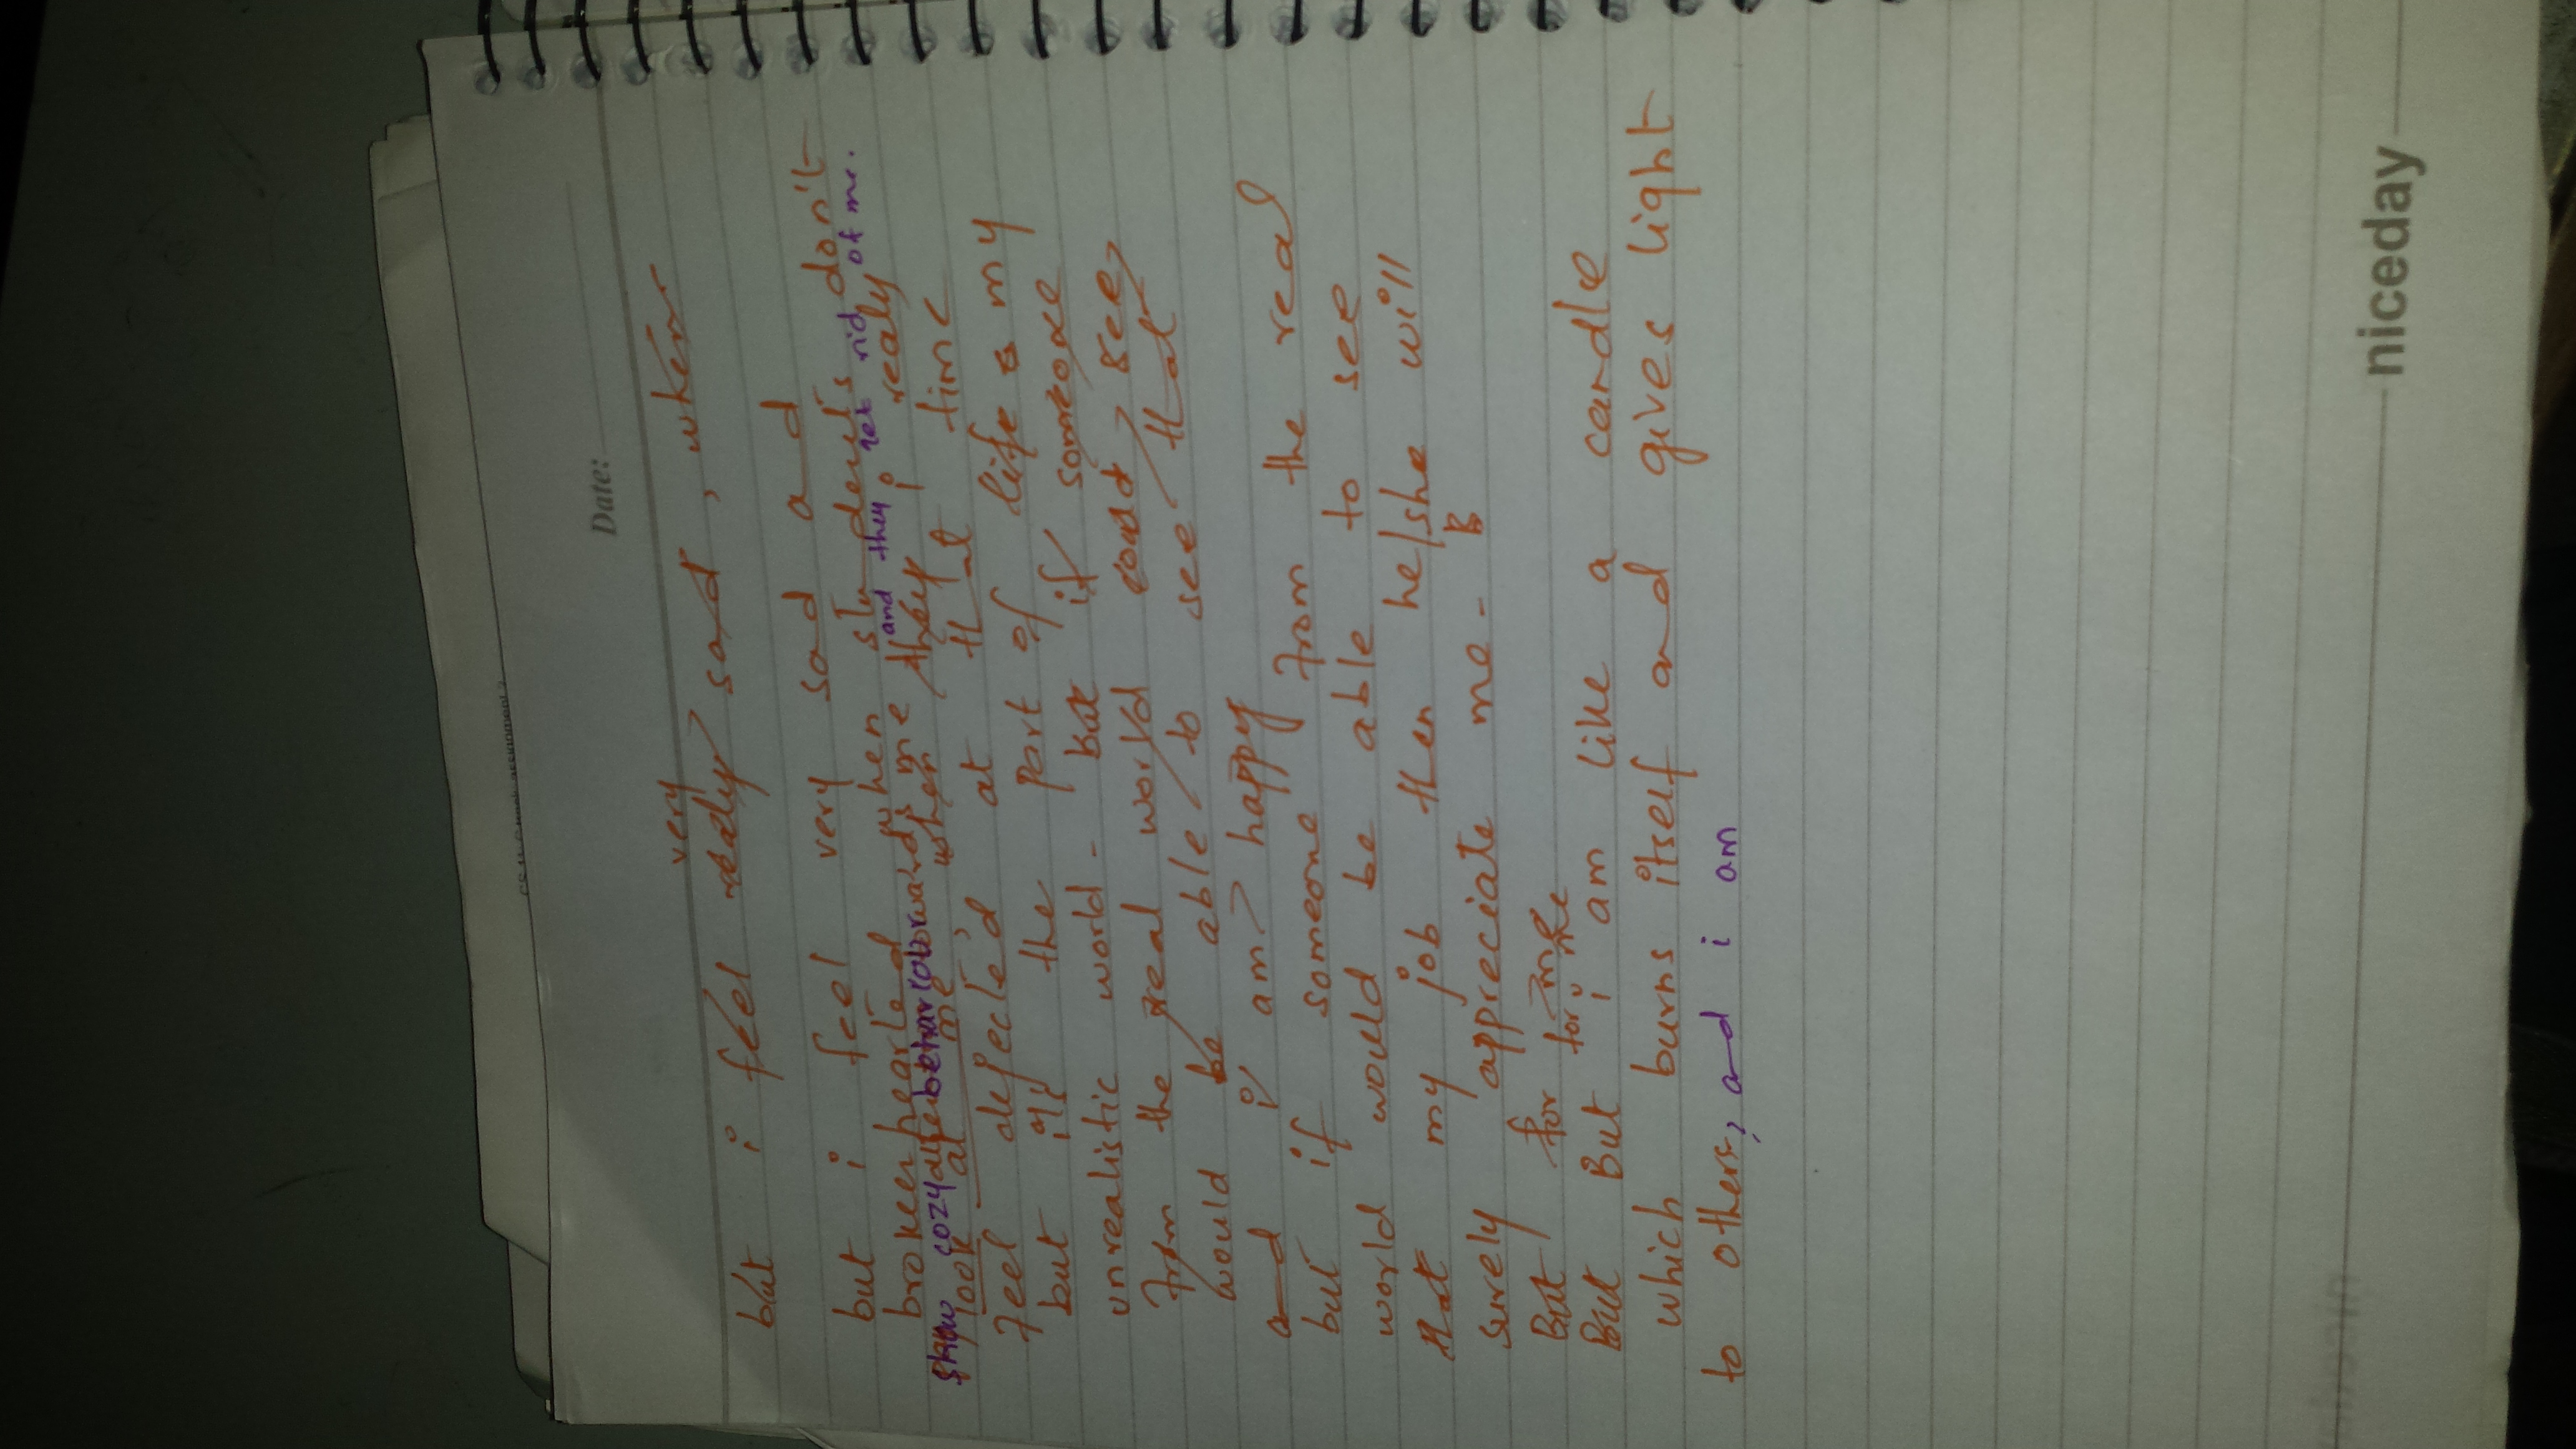 Date:
very
but i feel realy sad, when
but i feel very sad and
brokenhearted when students don't
and they get rid of me.
show cozy behavior towards me they i realy
look at me, when
feel dejected at that time
but it's the part of life my
unrealistic world - but if someone
from the real world could, see,
would be able to see that
and i am happy
but if someone from the real
world would be able to see
that my job then he/she will
surely appreciate me - B
But for me
for me
But But i am like a candle
which burns itself and gives light
to others, and i am
niceday